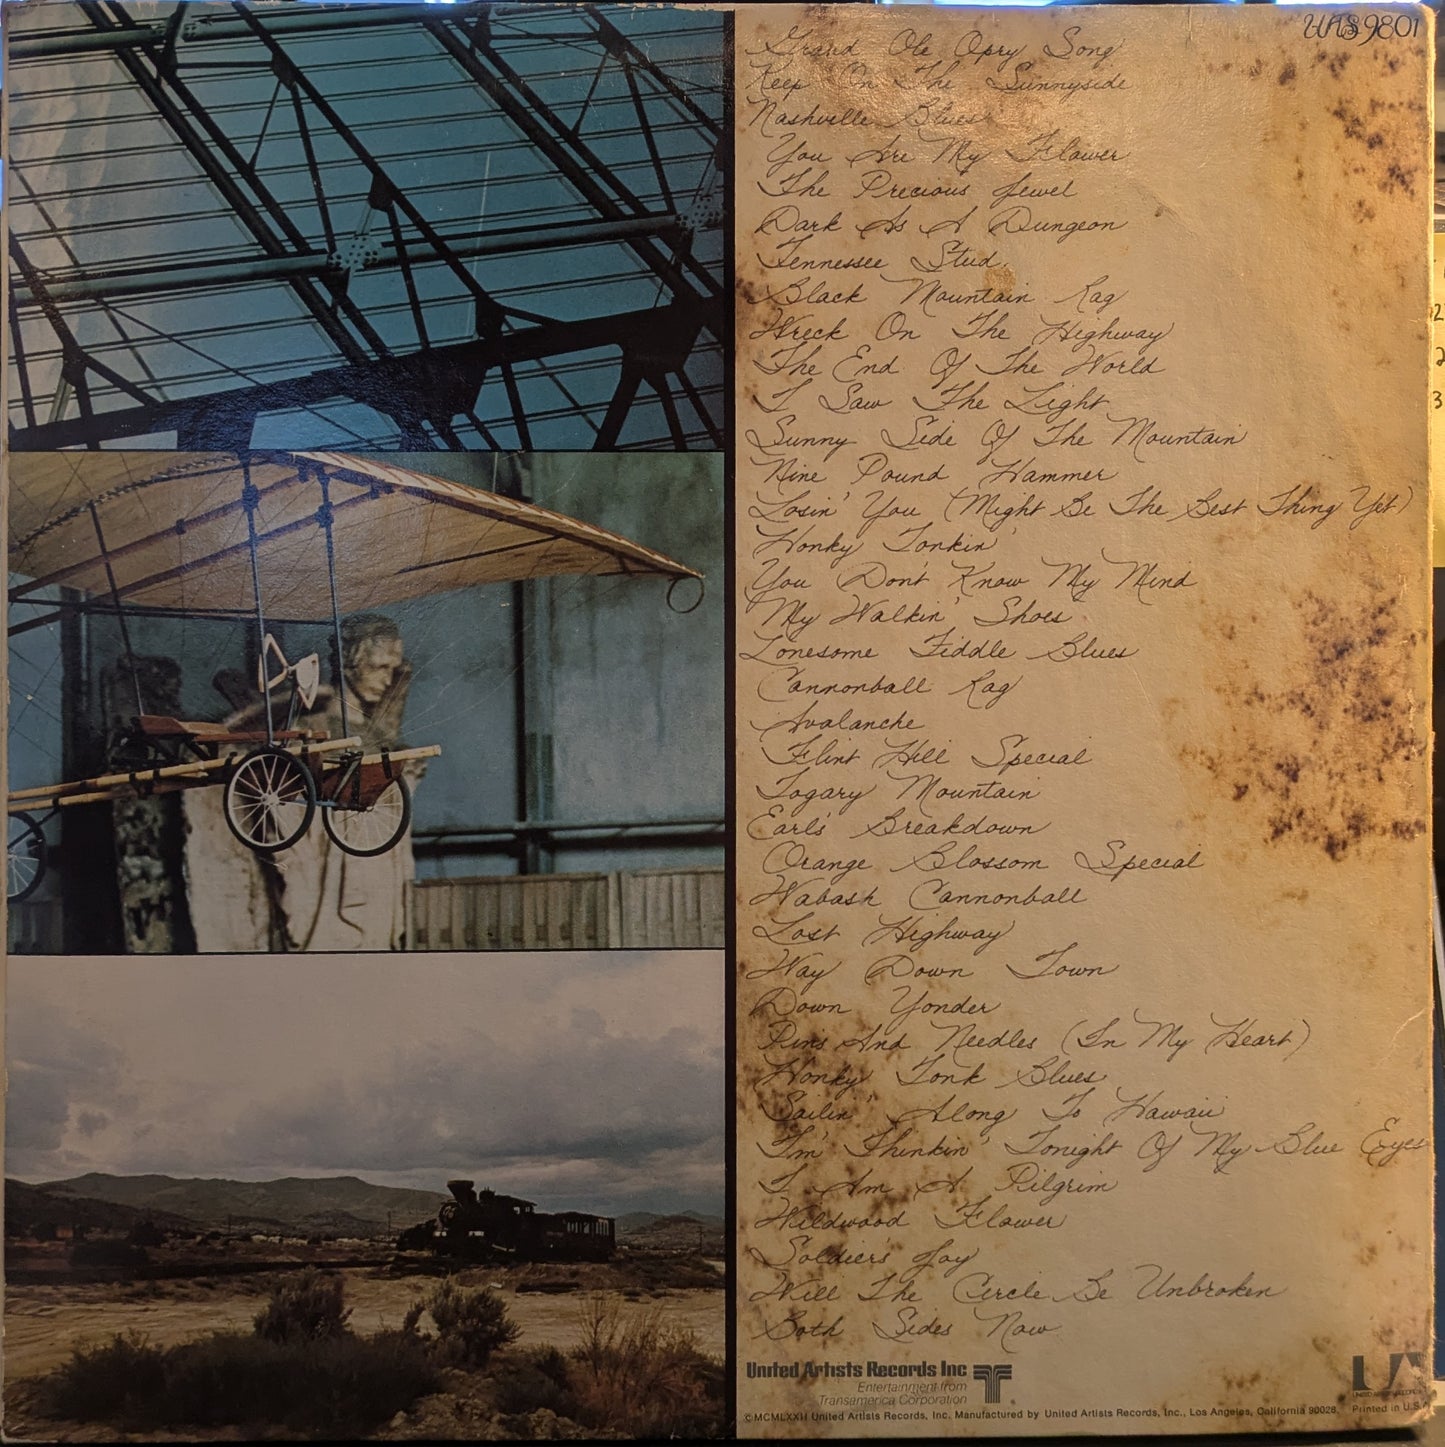 UAS9801
Grand Ole Opry Song
Keep On The Sunnyside
Nashville Blues
You Are My Flower
The Precious Jewel
Dark As A Dungeon
Tennessee Stud
Black Mountain Rag
Wreck On The Highway
The End Of The World
I Saw The Light
Sunny Side Of The Mountain
Nine Pound Hammer
Losin' You (Might Be The Best Thing Yet)
Honky Tonkin'
You Don't Know My Mind
My Walkin' Shoes
Lonesome Fiddle Blues
Cannonball Rag
Avalanche
Flint Hill Special
Togary Mountain
Earl's Breakdown
Orange Blossom Special
Wabash Cannonball
Lost Highway
Way Down Town
Down Yonder
Pins And Needles (In My Heart)
Honky Tonk Blues
Sailin' Along To Hawaii
I'm Thinkin' Tonight Of My Blue Eyes
I Am A Pilgrim
Wildwood Flower
Soldier's Joy
Will The Circle Be Unbroken
Both Sides Now
United Artists Records Inc
Entertainment from
Transamerica Corporation
UA
UNITED ARTISTS RECORDS
© MCMLXXII United Artists Records, Inc. Manufactured by United Artists Records, Inc., Los Angeles, California 90028. Printed in U.S.A.
2
2
3